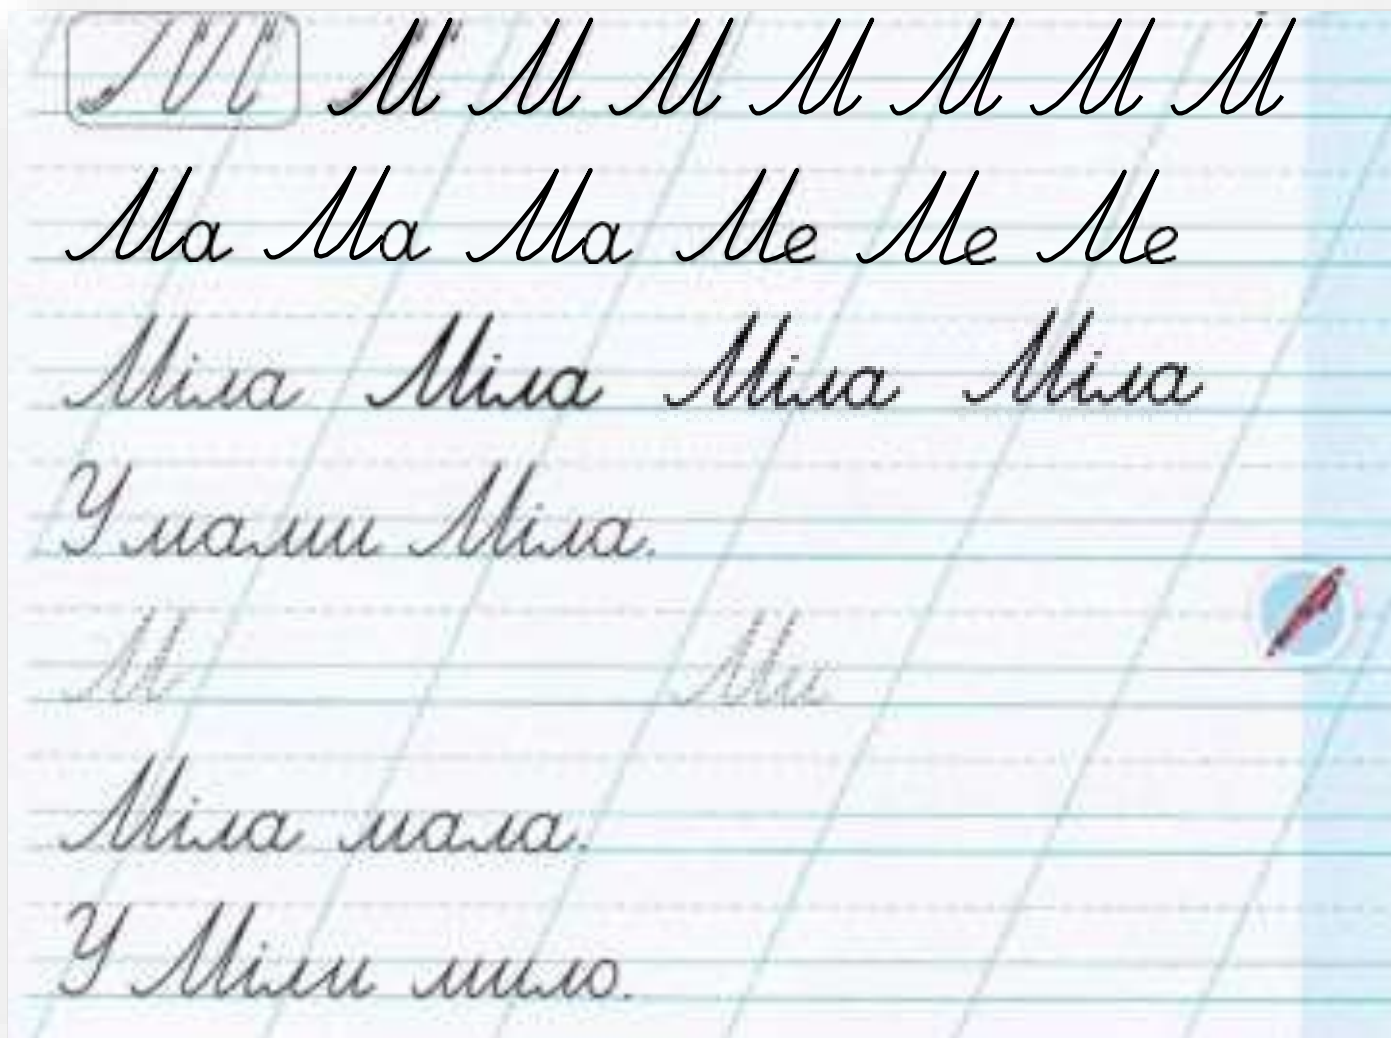 М М М М М М М М
Ма Ма Ма Ме Ме Ме
Міла Міла Міла Міла
У мами Міла.
М Ми
Міла мала.
У Міли мило.